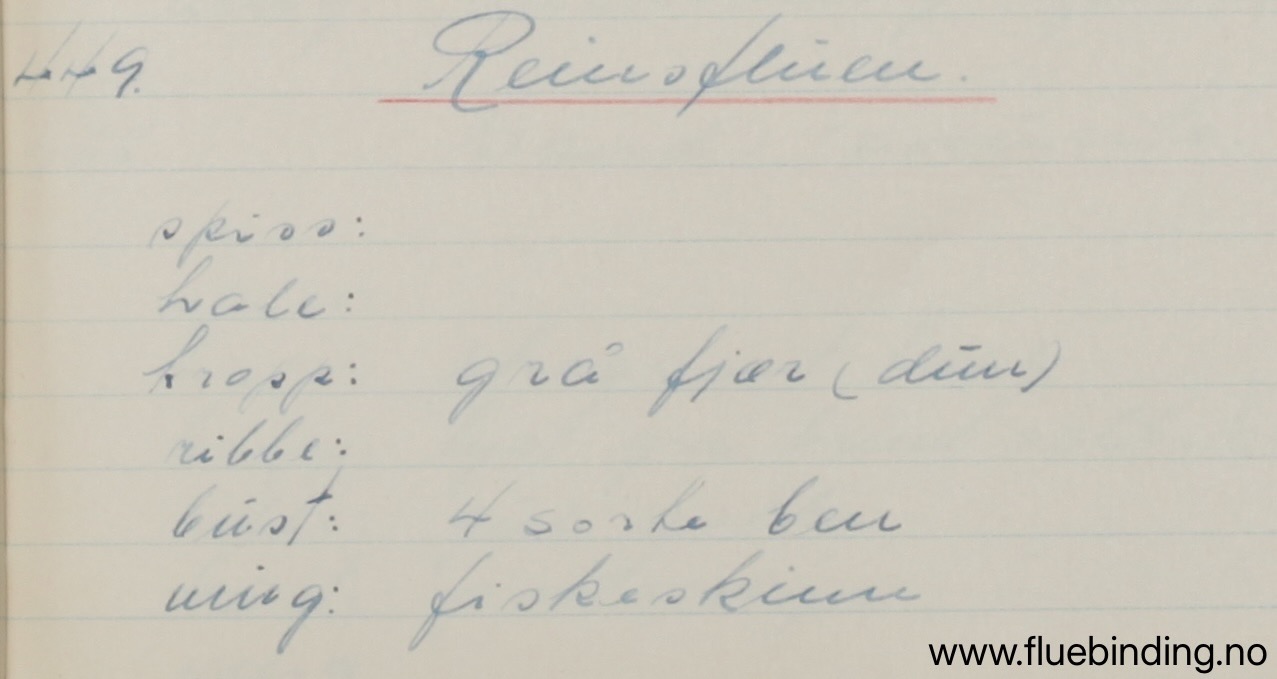 449. Reinsfluen.
spiss:
hale:
kropp: grå fjær (dun)
ribbe:
bust: 4 sorte ben
ving: fiskeskinn
www.fluebinding.no